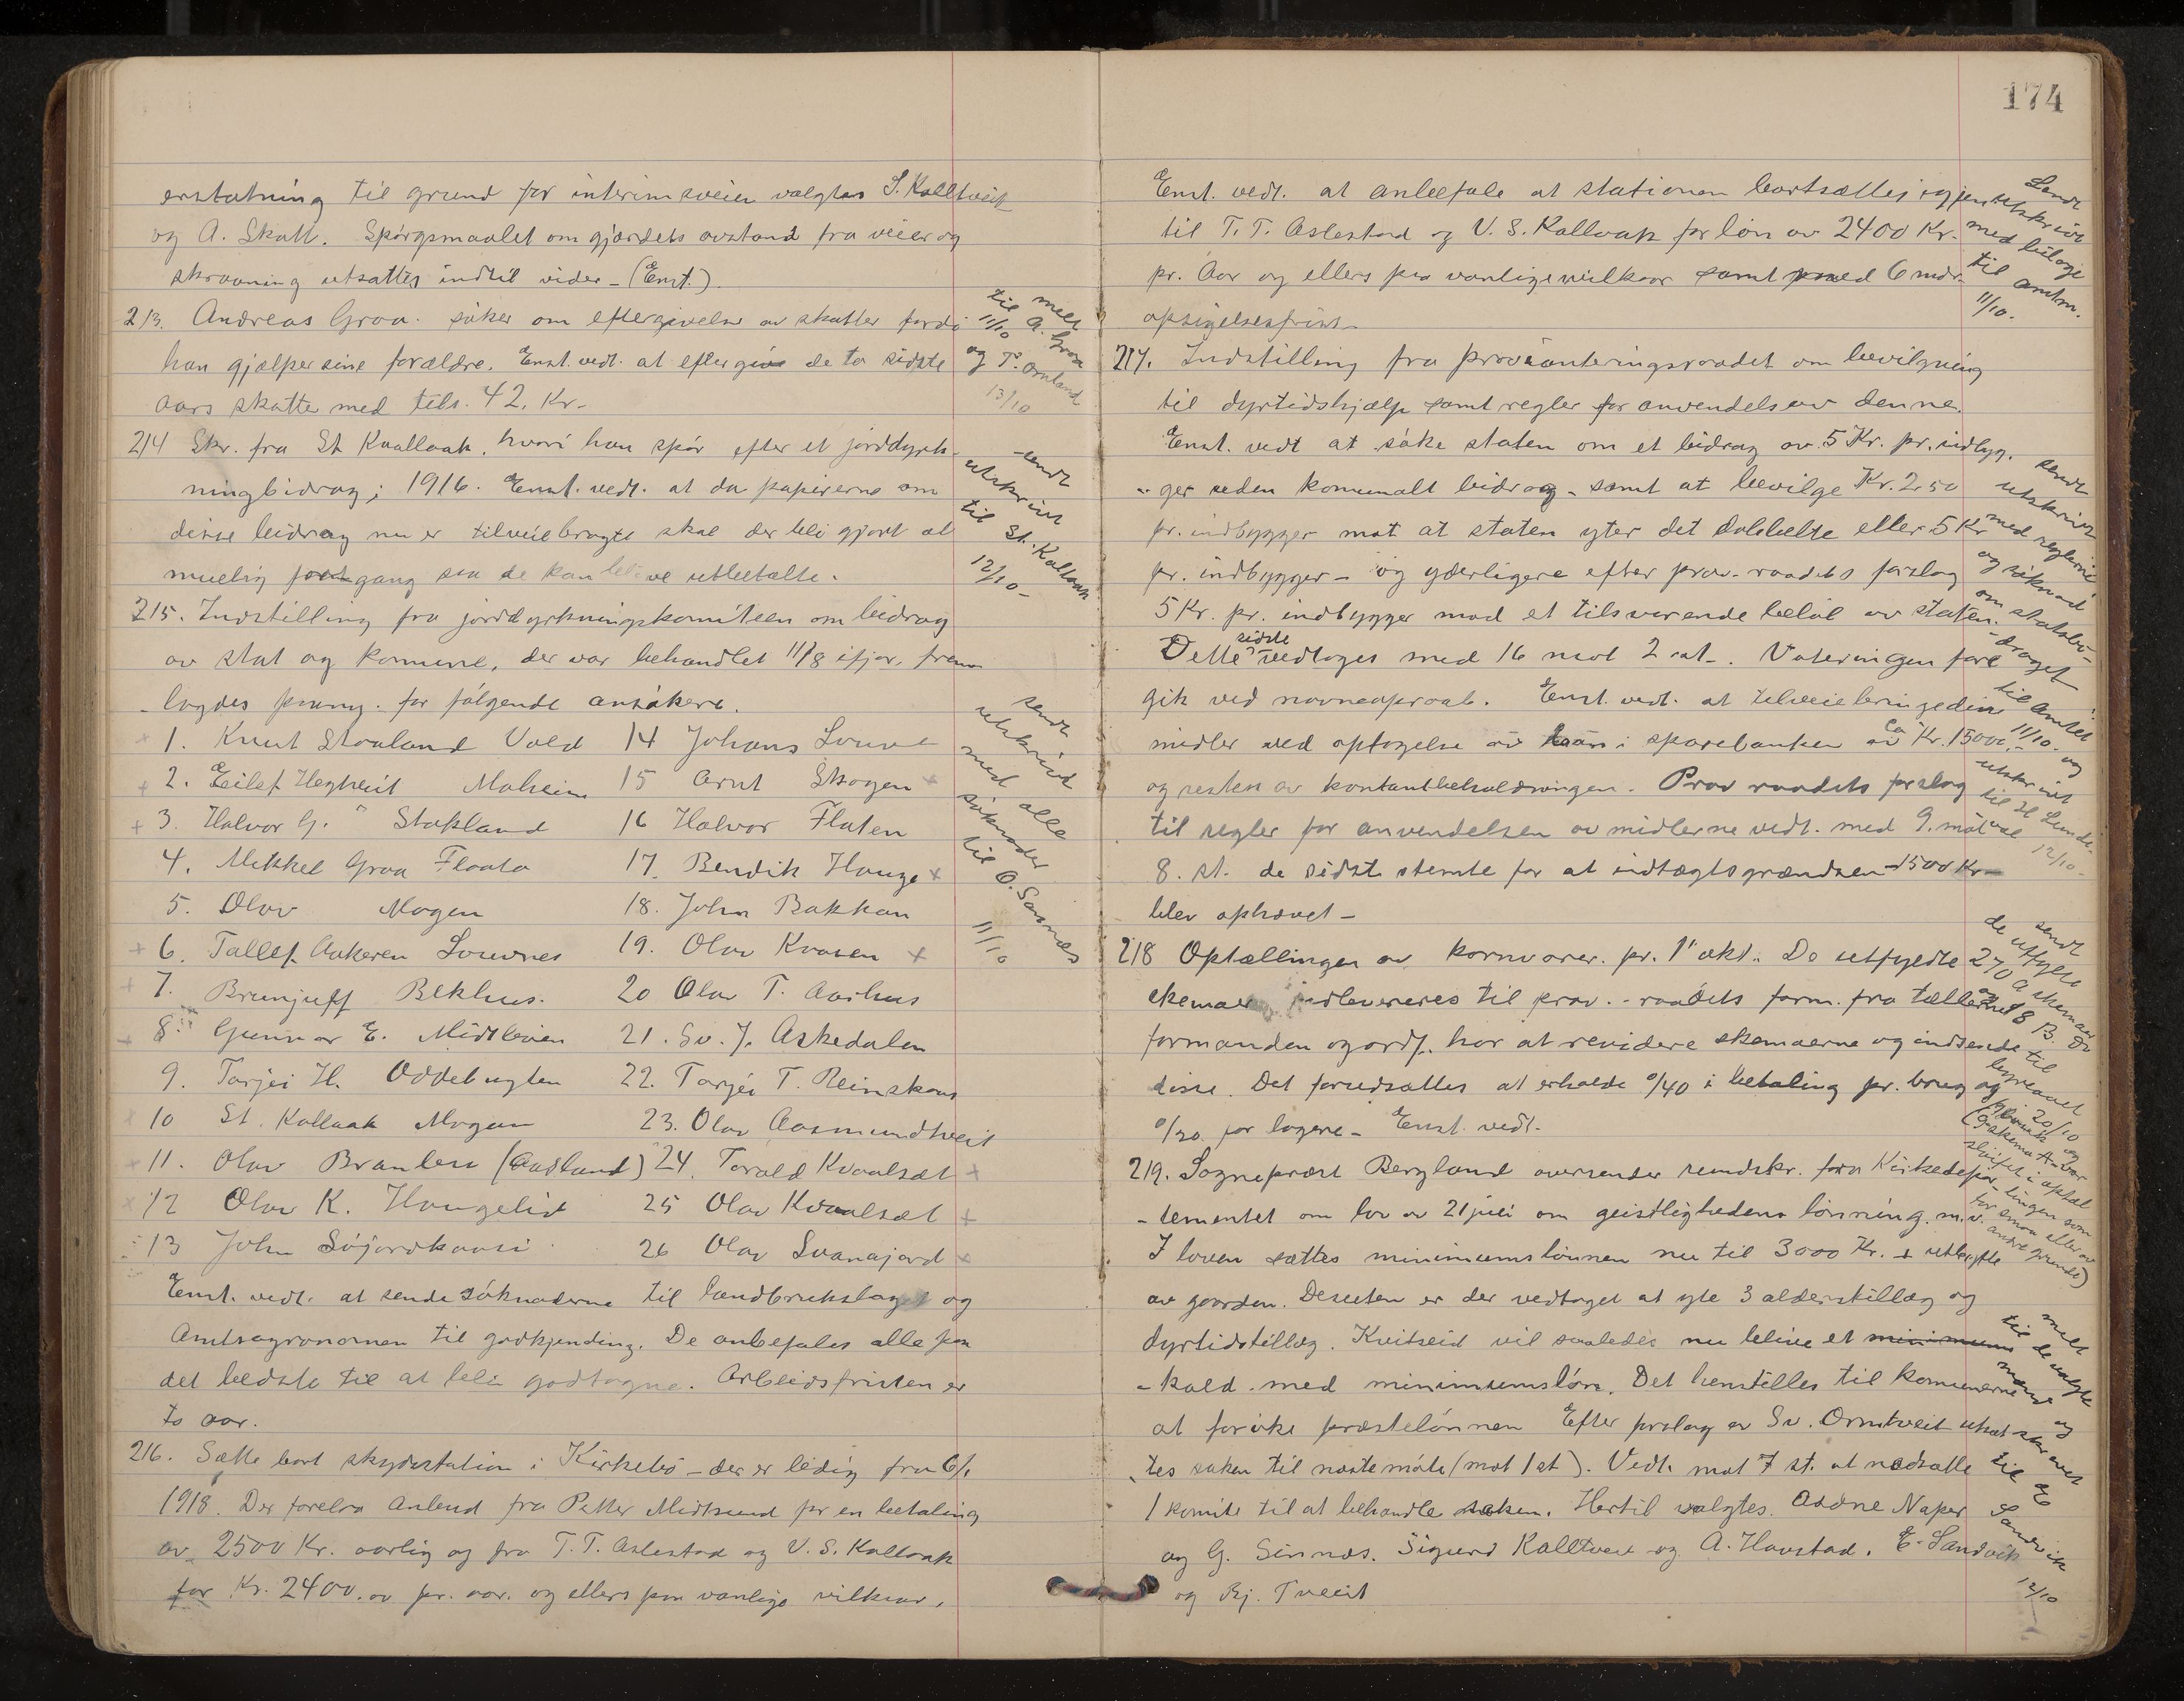 erstatning til grund for interimsveien valgtes S. Kalltveit
og A. Skatt. Spörgsmaalet om gjærdets avstand fra veier og
skraaning utsattes indtil vider - (Enst.)
213. Andreas Graa. söker om eftergivelse av skatter fordi
han gjælper sine forældre. Enst. vedt. at eftergive de to sidste
aars skatte med tils. 42. Kr-
melt
til A. Graa
11/10
og T. Omland
13/10
214 Skr. fra St Kaallaak, hvori han spör efter et jorddyrk-
ningbidrag i 1916. Enst. vedt. at da papirerne om
disse bidrag nu er tilveiebragte skal der bli gjort al
muelig fortgang saa de kan blive utbetalte.
sendt
utskrivt
til St. Kallaak
12/10-
215. Indstilling fra jorddyrkningskomiteen om bidrag
av stat og komune, der var behandlet 11/8 ifjor, frem
-lagdes paany. for fölgende ansökere.
1. Knut Staaland Vold 14 Johans Louve
2. Eilef Hegtveit Moheim 15 Arnt Skogen
3. Halvor G. " Stakland 16 Halvor Flaten
4. Mikkel Graa Flaata 17. Bendik Hauge
5. Olav Mogen 18. John Bakkan
6. Tallef Aakeren Souvnes 19. Olav Kvaven
7. Brunjulf Bekhus. 20 Olav T. Aarhus
8. Gunnar E. Midtbøen 21. Sv. J. Askedalen
9. Tarjei H. Oddebugten 22. Tarjei T. Reinskaas
10 St. Kallaak Mogen 23. Olav Aasmundtveit
11. Olav Braaten (Aasland) 24. Torald Kvaalsæt
12 Olav K. Haugelid 25 Olav Kvaalsæt
13 John Söjordkaasi 26 Olav Svanajord
sendt
utskrivt
med alle
söknader
til O. Sannes
11/10
Enst. vedt. at sende söknaderne til landbrukslaget og
Amtsagronomen til godkjending. De anbefales alle paa
det bedste til at bli godtagne. Arbeidsfristen er
to aar.
216. Sætte bort skydsstation i Kirkebö - der er ledig fra 6/1
1918. Der forelaa Anbud fra Petter Midtsund for en betaling
av 2500 Kr. aarlig og fra T. T. Aslestad og V. S. Kallaak
for Kr. 2400.00 pr. aar. og ellers paa vanlige vilkaar.
174
Enst. vedt. at anbefale at stationen bortsættes igjen
til T. T. Aslestad og V. S. Kallaak for lön av 2400 Kr.
pr. Aar og ellers paa vanlige vilkaar samt med 6 mdr.
opsigelsesfrist-
Sendt
utskrivt
med bilage
til amtm.
11/10.
217. Indstilling fra provianteringsraadet om bevilgning
til dyrtidshjælp samt regler for anvendelse av denne.
Enst. vedt at söke staten om et bidrag av 5 Kr. pr. indbyg.
-ger uden komunalt bidrag - samt at bevilge Kr. 2.50
pr. indbygger mot at staten yter det dobbelte eller 5 Kr
pr. indbygger - og yderligere efter prov. raadets forslag
5 Kr. pr. indbygger mod et tilsvarende belöb av staten.
Dette sidste vedtoges med 16 mot 2 st-. Voteringen fore
gik ved navneopraab. Enst. vedt. at tilveiebringe disse
midler ved optagelse av laan i sparebanken av ca Kr. 15000.-
og resten av kontantbeholdningen. Prov raadets forslag
til regler for anvendelsen av midlerne vedt. med 9. mot
8. st. de sidste stemte for at indtægtsgrændsen 1500 Kr-
blev ophævet -
sendt
utskrivt
med reglerne
og söknad
om statsbi-
-draget
til amtet
11/10. og
utskrivt
til H Lunde-
val
12/10-
218 Optællingen av kornvarer. pr. 1' okt. De utfyldte
skemaer indleveres til prov.-raadets form. fra tællerne
formanden og ordf. har at revidere skemaerne og indsende
disse. Det forudsættes at erholde 0/40 i betaling pr. brug og
0/20 for lagere - Enst. vedt.
sendt
de utfylte
270 A skemaer
og 18 B. do
til
byraaet
20/10
219. Sogneprest Bergland oversender rundskr. fra Kirkedepar-
-tementet om lov av 21 juli om geistlighedens lönning. m.v.
I loven sættes minimumslönnen nu til 3000 Kr. + utbytte
av gaarden. Desuten er der vedtaget at yte 3 alderstillæg og
dyrtidstillæg. Kvitseid vil saaledes nu blive et minimums
-kald. med minimumslön. Det henstilles til komunerne
at foröke prestelönnen Efter forslag av Sv. Omtveit utsæt
tes saken til næste möte (mot 1 st). Vedt. mot 7 st. at nedsætte
1 komite til at behandle saken. Hertil valgtes. Asöne Naper
og G. Sinnes. Sigurd Kalltveit og A. Haustad. E. Sandvik
og Bj. Tveit
melt
til de valgte
mænd og
skrevet
til E
Sandvik
12/10